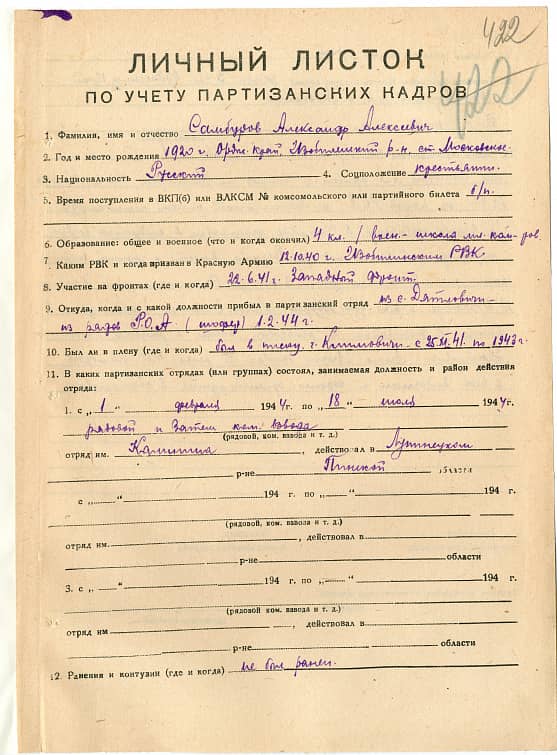 422
422
ЛИЧНЫЙ ЛИСТОК
ПО УЧЕТУ ПАРТИЗАНСКИХ КАДРОВ
1. Фамилия, имя и отчество Самбуров Александр Алексеевич
2. Год и место рождения 1920 г. Ордж. край, Изобилинский р-н, ст. Московское
3. Национальность Русский 4. Соцположение крестьянин
5. Время поступления в ВКП(б) или ВЛКСМ № комсомольского или партийного билета б/п.
6. Образование: общее и военное (что и когда окончил) 4 кл. / воен.- школа мл. ком-ров
7. Каким РВК и когда призван в Красную Армию 12.10.40 г. Изобилинским РВК
8. Участие на фронтах (где и когда) 22.6.41 г. Западный фронт.
9. Откуда, когда и с какой должности прибыл в партизанский отряд из с. Дятловичи
из рядов Р.О.А (шофер) 1.2.44 г.
10. Был ли в плену (где и когда) был в плену г. Климовичи с 25.XI.41. по 1943 г.
11. В каких партизанских отрядах (или группах) состоял, занимаемая должность и район действия
отряда:
1. с „1" февраля 1944 г. по „18" июля 1944 г.
рядовой и затем ком. взвода
(рядовой, ком. взвода и т. д.)
отряд им. Калинина, действовал в Лунинецком
р-не Пинской области
с „ " 194 г. по „ " 194 г.
(рядовой, ком. взвода и т. д.)
отряд им. , действовал в
р-не области
3. с „ " 194 г. по „ " 194 г.
(рядовой, ком. взвода и т. д.)
отряд им , действовал в
р-не области
12. Ранения и контузии (где и когда) не был ранен.